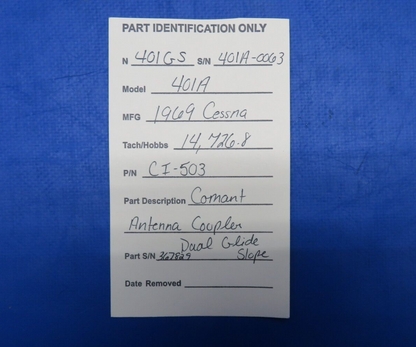 PART IDENTIFICATION ONLY
N 401GS S/N 401A-0063
Model 401A
MFG 1969 Cessna
Tach/Hobbs 14,726.8
P/N CI-503
Part Description Comant
Antenna Coupler
Dual Glide
Part S/N 367829 Slope
Date Removed